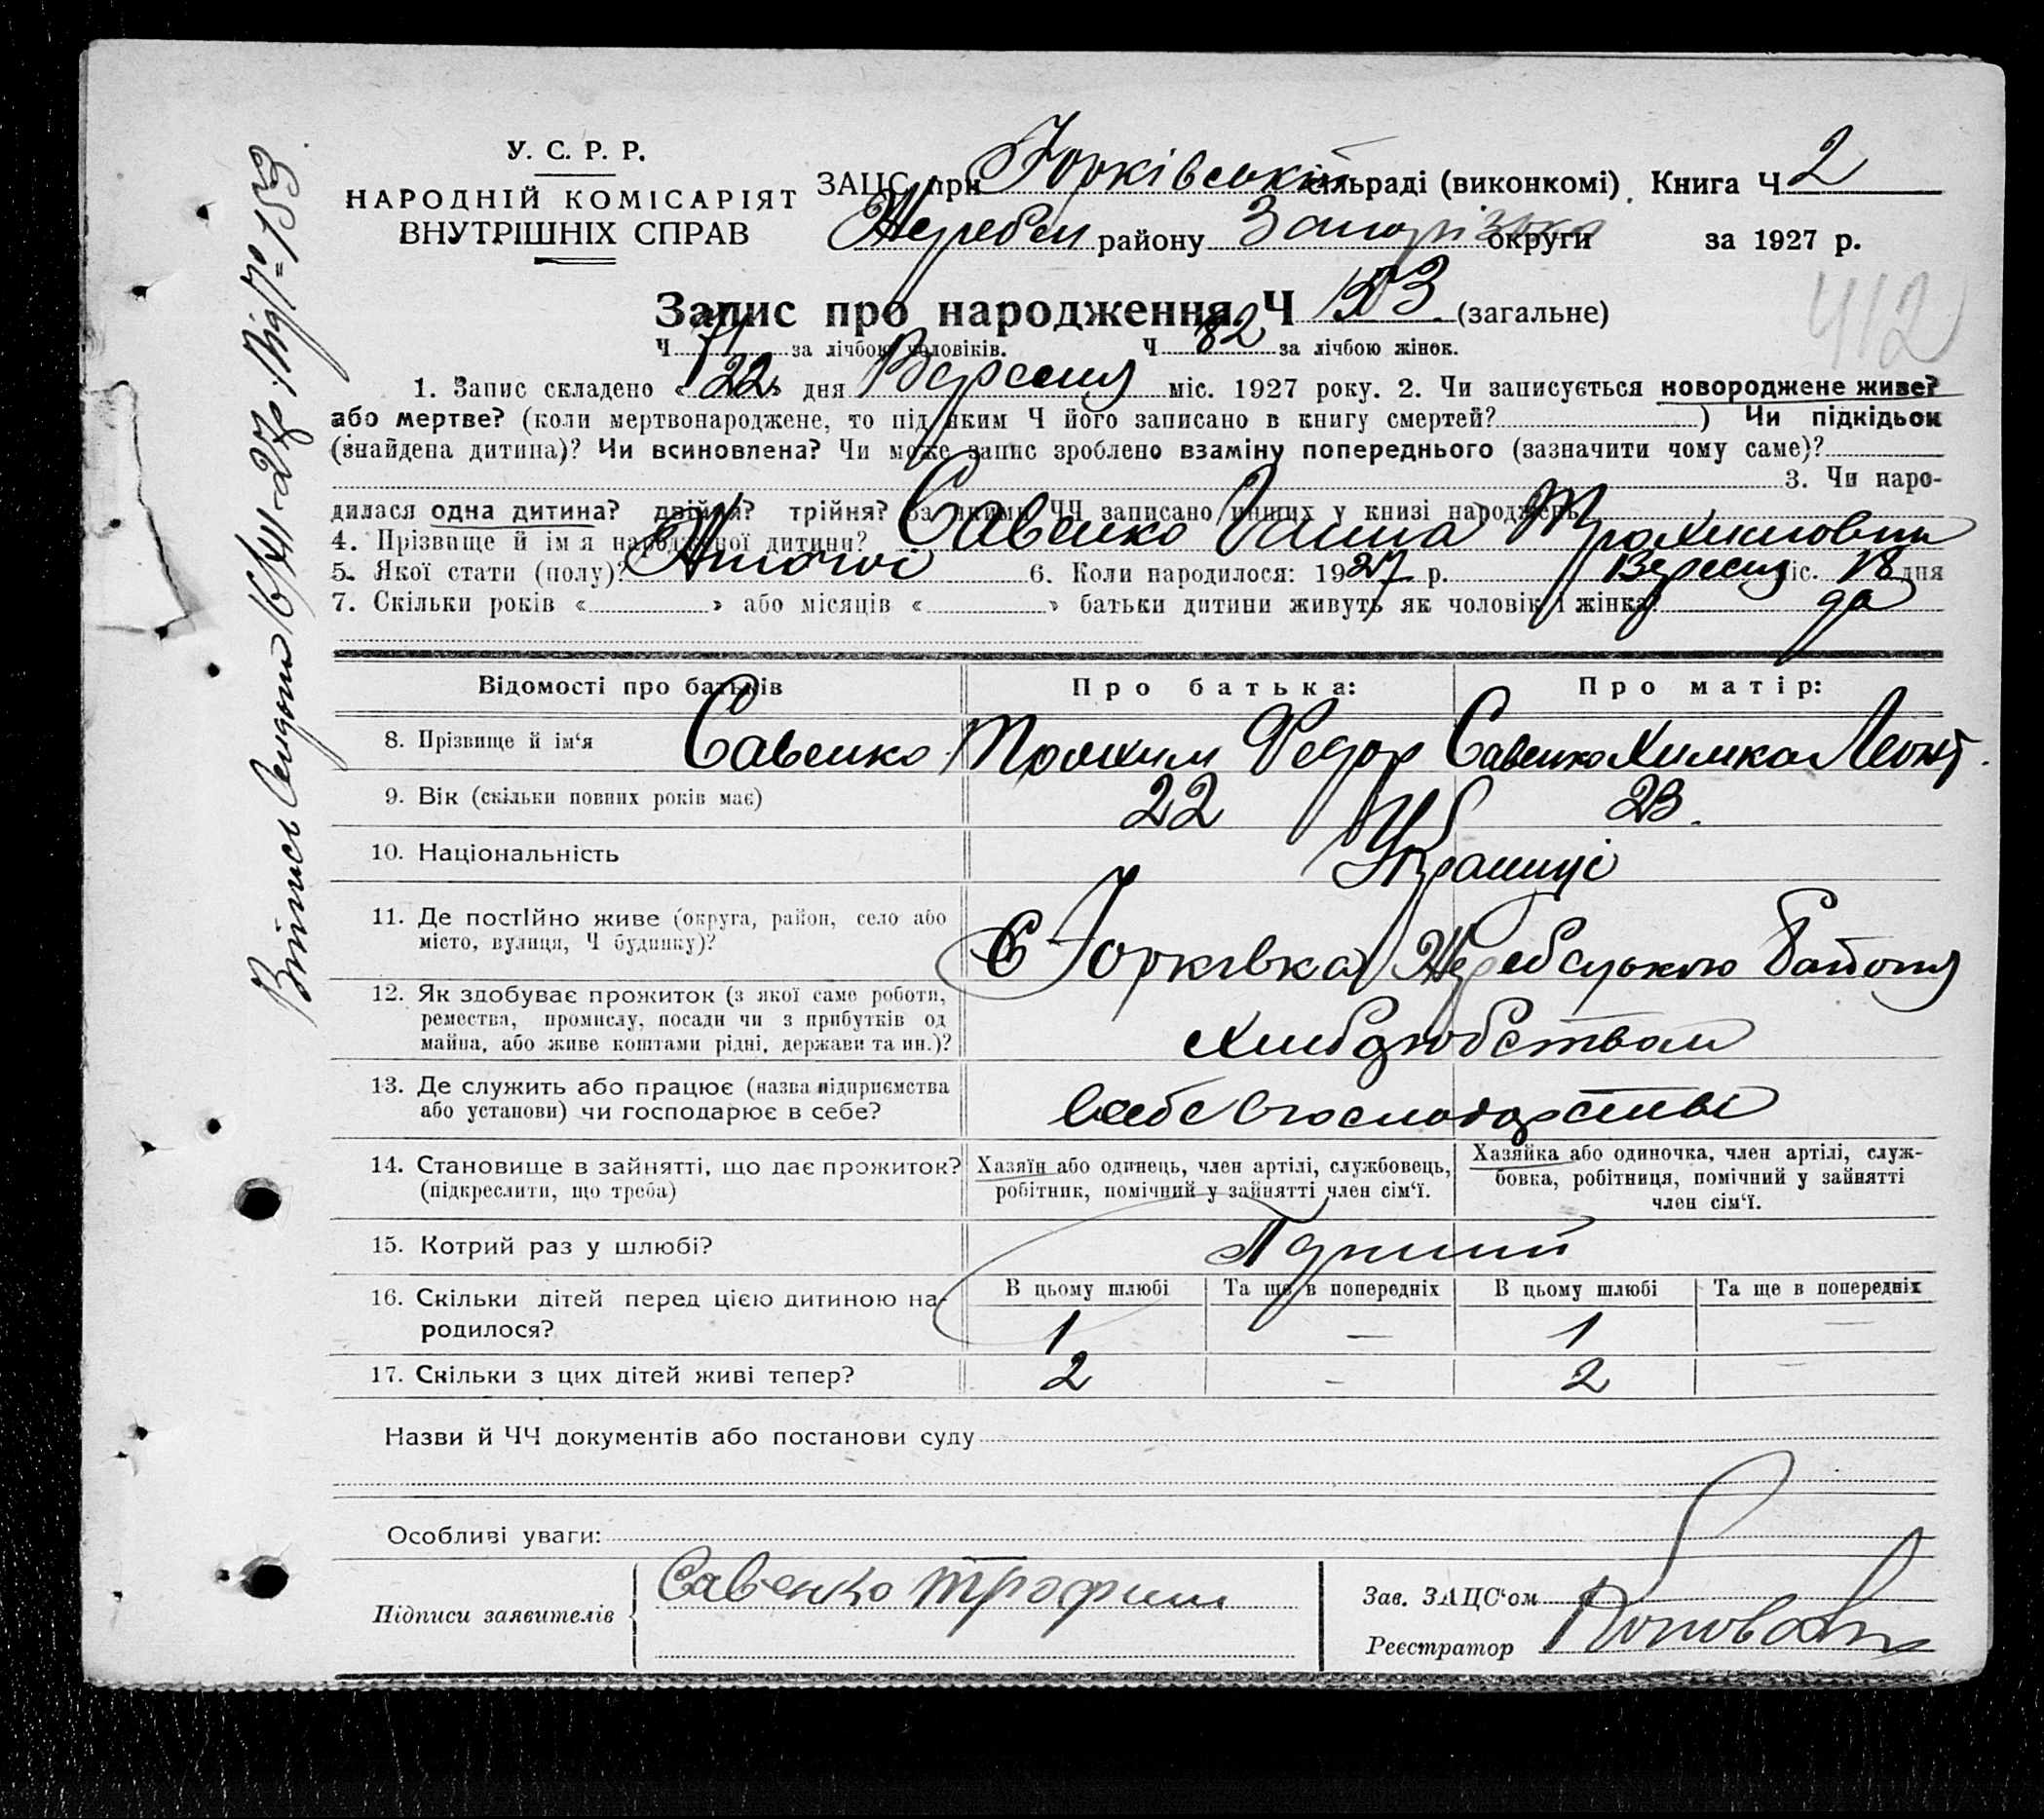 У. С. Р. Р.
НАРОДНІЙ КОМІСАРІЯТ
ВНУТРІШНІХ СПРАВ
ЗАЦС при Юрківській сільраді (виконкомі). Книга Ч 2
Жеребец району Запорізька округи за 1927 р.
412
Запис про народження Ч 153 (загальне)
Ч 71 за лічбою чоловіків. Ч 82 за лічбою жінок.
1. Запис складено «22» дня Вересня міс. 1927 року. 2. Чи записується новороджене живе?
або мертве? (коли мертвонароджене, то під яким Ч його записано в книгу смертей? ) Чи підкідьок
(знайдена дитина)? Чи всиновлена? Чи може запис зроблено взаміну попереднього (зазначити чому саме)?
3. Чи наро-
дилася одна дитина? двійня? трійня? За якими ЧЧ записано инших у книзі народжень
4. Прізвище й ім'я народженої дитини? Савенко Ганна Трохимовна
5. Якої стати (полу)? Жіночої 6. Коли народилося: 1927 р. Вересня міс. 18 дня
7. Скільки років « » або місяців « » батьки дитини живуть як чоловік і жінка? да
Відомості про батьків Про батька: Про матір:
8. Прізвище й ім'я Савенко Трохим Федор Савенко Химка Леонт.
9. Вік (скільки повних років має) 22 23.
10. Національність Українці
11. Де постійно живе (округа, район, село або
місто, вулиця, Ч будинку)?
С Юрківка Жеребецького Району
12. Як здобуває прожиток (з якої саме роботи,
ремества, промислу, посади чи з прибутків од
майна, або живе коштами рідні, держави та ин.)?
Хлібдробством
13. Де служить або працює (назва підприємства
або установи) чи господарює в себе?
В себе в господарстві
14. Становище в зайнятті, що дає прожиток?
(підкреслити, що треба)
Хазяїн або одинець, член артілі, службовець,
робітник, помічний у зайнятті член сім'ї.
Хазяйка або одиночка, член артілі, служ-
бовка, робітниця, помічний у зайнятті
член сім'ї.
15. Котрий раз у шлюбі?
16. Скільки дітей перед цією дитиною на-
родилося?
В цьому шлюбі Та ще в попередніх В цьому шлюбі Та ще в попередніх
1 — 1 —
17. Скільки з цих дітей живі тепер? 2 - 2 -
Назви й ЧЧ документів або постанови суду
Особливі уваги:
Підписи заявителів Савенко Трофим
Зав. ЗАЦС'ом
Реєстратор